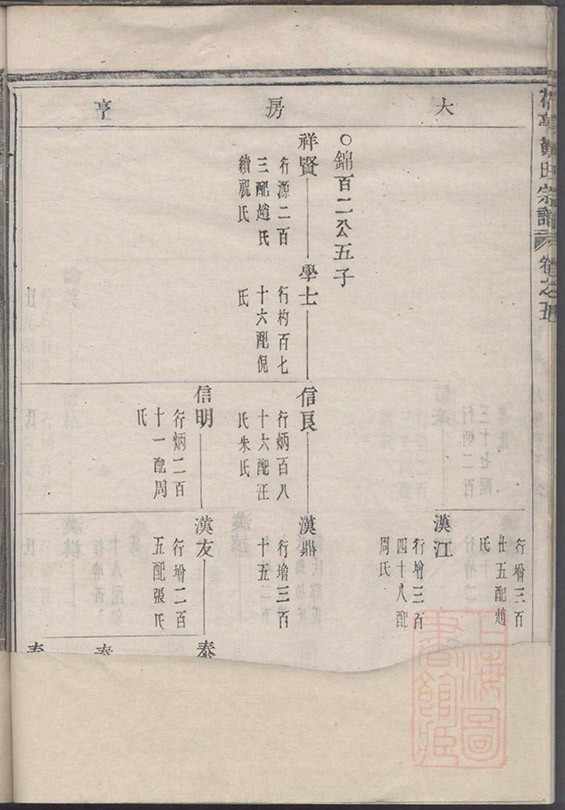 鄭氏宗譜 卷之五
大房亨
行增三百
廿五配趙
氏
漢江
行增三百
四十八配
周氏
○錦百二公五子
祥賢
行源二百
三配趙氏
續祝氏
學士
行杓百七
十六配倪
氏
信良
行炳百八
十六配汪
氏朱氏
漢鼎
行增三百
十五
信明
行炳二百
十一配周
氏
漢友
行增二百
五配張氏
泰
泰
泰
上海圖書館